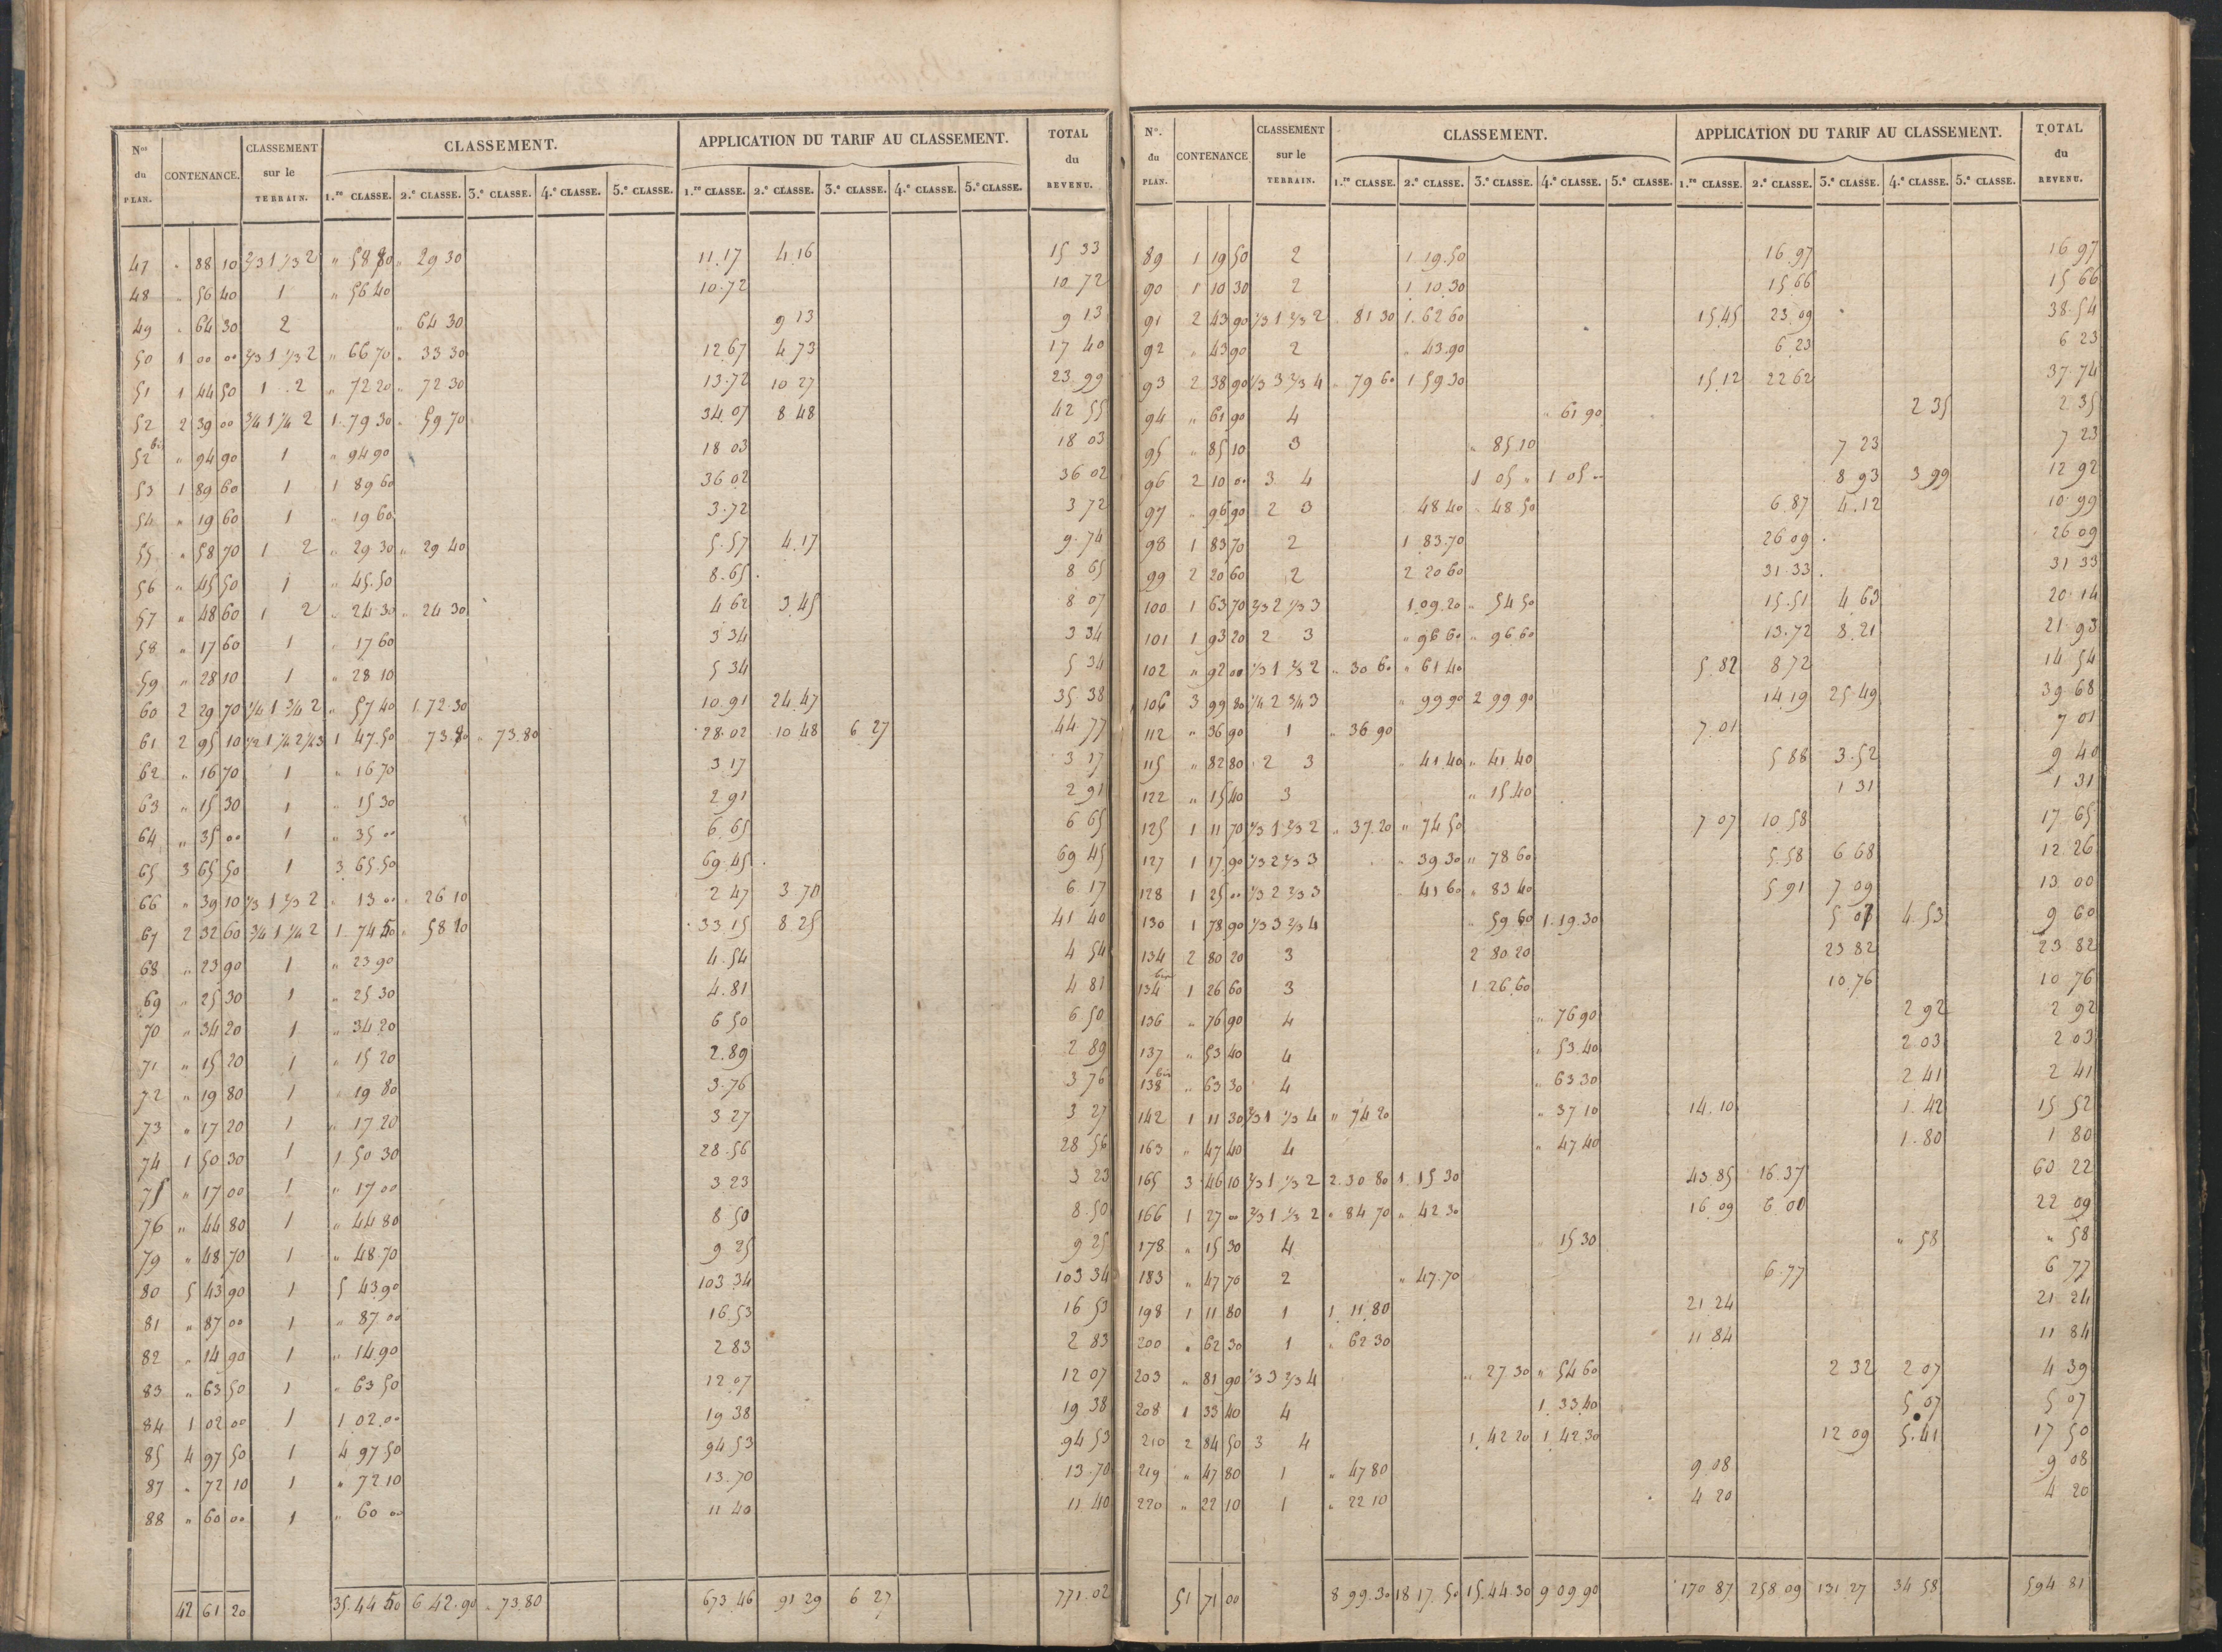 Nos du PLAN. CONTENANCE. CLASSEMENT sur le TERRAIN. CLASSEMENT. APPLICATION DU TARIF AU CLASSEMENT. TOTAL du REVENU.
1.re CLASSE. 2.e CLASSE. 3.e CLASSE. 4.e CLASSE. 5.e CLASSE. 1.re CLASSE. 2.e CLASSE. 3.e CLASSE. 4.e CLASSE. 5.e CLASSE.
47 " 88 10 2/3 1 1/3 2 " 58 80 " 29 30 11.17 4.16 15 33
48 " 56 40 1 " 56 40 10.72 10 72
49 " 64 30 2 " 64 30 9 13 9 13
50 1 00 00 2/3 1 1/3 2 " 66 70 " 33 30 12.67 4.73 17 40
51 1 44 50 1 2 " 72 20 " 72 30 13.72 10 27 23 99
52 2 39 00 3/4 1 1/4 2 1.79 30 " 59 70 34 07 8 48 42 55
52 bis " 94 90 1 " 94 90 18 03 18 03
53 1 89 60 1 1 89 60 36 02 36 02
54 " 19 60 1 " 19 60 3.72 3 72
55 " 58 70 1 2 " 29 30 " 29 40 5.57 4.17 9.74
56 " 45 50 1 " 45.50 8.65 8 65
57 " 48 60 1 2 " 24 30 " 24 30 4 62 3.45 8 07
58 " 17 60 1 " 17 60 3 34 3 34
59 " 28 10 1 " 28 10 5 34 5 34
60 2 29 70 1/4 1 3/4 2 " 57 40 1.72.30 10.91 24.47 35 38
61 2 95 10 1/2 1 1/4 2 1/4 3 1 47.50 " 73.80 " 73.80 28.02 10 48 6 27 44 77
62 " 16 70 1 " 16 70 3.17 3 17
63 " 15 30 1 " 15 30 2 91 2 91
64 " 35 00 1 " 35 00 6.65 6 65
65 3 65 50 1 3 65.50 69.45 69 45
66 " 39 10 1/3 1 2/3 2 " 13 00 " 26 10 2 47 3 70 6 17
67 2 32 60 3/4 1 1/4 2 1 74 50 " 58 10 33.15 8.25 41 40
68 " 23 90 1 " 23 90 4.54 4 54
69 " 25 30 1 " 25 30 4.81 4 81
70 " 34 20 1 " 34 20 6 50 6 50
71 " 15 20 1 " 15 20 2.89 2 89
72 " 19 80 1 " 19 80 3.76 3 76
73 " 17 20 1 " 17 20 3 27 3 27
74 1 50 30 1 1 50 30 28.56 28 56
75 " 17 00 1 " 17 00 3.23 3 23
76 " 44 80 1 " 44 80 8 50 8.50
79 " 48 70 1 " 48.70 9 25 9 25
80 5 43 90 1 5 43.90 103 34 103 34
81 " 87 00 1 " 87 00 16.53 16 53
82 " 14 90 1 " 14.90 2 83 2 83
83 " 63 50 1 " 63 50 12 07 12 07
84 1 02 00 1 1 02.00 19 38 19 38
85 4 97 50 1 4 97 50 94 53 94 53
87 " 72 10 1 " 72 10 13.70 13.70
88 " 60 00 1 " 60 00 11 40 11 40
42 61 20 35.44 50 6.42.90 " 73.80 673.46 91 29 6 27 771.02
No. du PLAN. CONTENANCE CLASSEMENT sur le TERRAIN. CLASSEMENT. APPLICATION DU TARIF AU CLASSEMENT. TOTAL du REVENU.
1.re CLASSE. 2.e CLASSE. 3.e CLASSE. 4.e CLASSE. 5.e CLASSE. 1.re CLASSE. 2.e CLASSE. 3.e CLASSE. 4.e CLASSE. 5.e CLASSE.
89 1 19 50 2 1.19.50 16.97 16 97
90 1 10 30 2 1 10.30 15 66 15 66
91 2 43 90 1/3 1 2/3 2 " 81 30 1.62 60 15.45 23.09 38.54
92 " 43 90 2 " 43.90 6.23 6 23
93 2 38 90 1/3 3 2/3 4 " 79 60 1 59 30 15.12 22 62 37 74
94 " 61 90 4 " 61 90 2 35 2 35
95 " 85 10 3 " 85.10 7 23 7 23
96 2 10 00 3 4 1 05 " 1 05 " 8 93 3 99 12 92
97 " 96 90 2 3 " 48 40 " 48 50 6.87 4.12 10 99
98 1 83 70 2 1 83.70 26 09 26 09
99 2 20 60 2 2 20 60 31.33 31 33
100 1 63 70 2/3 2 1/3 3 1.09.20 " 54 50 15.51 4.63 20.14
101 1 93 20 2 3 " 96 60 " 96 60 13.72 8.21 21 93
102 " 92 00 1/3 1 2/3 2 " 30 60 " 61 40 5.82 8 72 14 54
106 3 99 80 1/4 2 3/4 3 " 99 90 2 99 90 14.19 25.49 39 68
112 " 36 90 1 " 36 90 7.01 7 01
115 " 82 80 2 3 " 41.40 " 41 40 5 88 3.52 9 40
122 " 15 40 3 " 15.40 1 31 1 31
125 1 11 70 1/3 1 2/3 2 " 37.20 " 74 50 7 07 10.58 17 65
127 1 17 90 1/3 2 2/3 3 " 39.30 " 78 60 5.58 6 68 12 26
128 1 25 00 1/3 2 2/3 3 " 41 60 " 83 40 5 91 7 09 13 00
130 1 78 90 1/3 3 2/3 4 " 59 60 1.19.30 5 07 4.53 9 60
134 2 80 20 3 2 80.20 23 82 23 82
134 bis 1 26 60 3 1 26.60 10.76 10 76
136 " 76 90 4 " 76 90 2 92 2 92
137 " 53 40 4 " 53.40 2.03 2 03
138 bis " 63 30 4 " 63.30 2.41 2 41
142 1 11 30 2/3 1 1/3 4 " 74 20 " 37 10 14.10 1.42 15 52
163 " 47 40 4 " 47 40 1.80 1 80
165 3 46 10 2/3 1 1/3 2 2.30 80 1.15 30 43.85 16.37 60 22
166 1 27 00 2/3 1 1/3 2 " 84 70 " 42 30 16 09 6 00 22 09
178 " 15 30 4 " 15 30 " 58 " 58
183 " 47 70 2 " 47.70 6.77 6 77
198 1 11 80 1 1.11.80 21 24 21 24
200 " 62 30 1 " 62 30 11 84 11 84
203 " 81 90 1/3 3 2/3 4 " 27 30 " 54 60 2 32 2 07 4 39
208 1 33 40 4 1.33.40 5.07 5 07
210 2 84 50 3 4 1.42 20 1.42 30 12 09 5.41 17 50
219 " 47 80 1 " 47 80 9.08 9 08
220 " 22 10 1 " 22 10 4 20 4 20
51 71 00 8 99.30 18 17.50 15.44.30 9 09 90 170 87 258 09 131.27 34 58 594 81